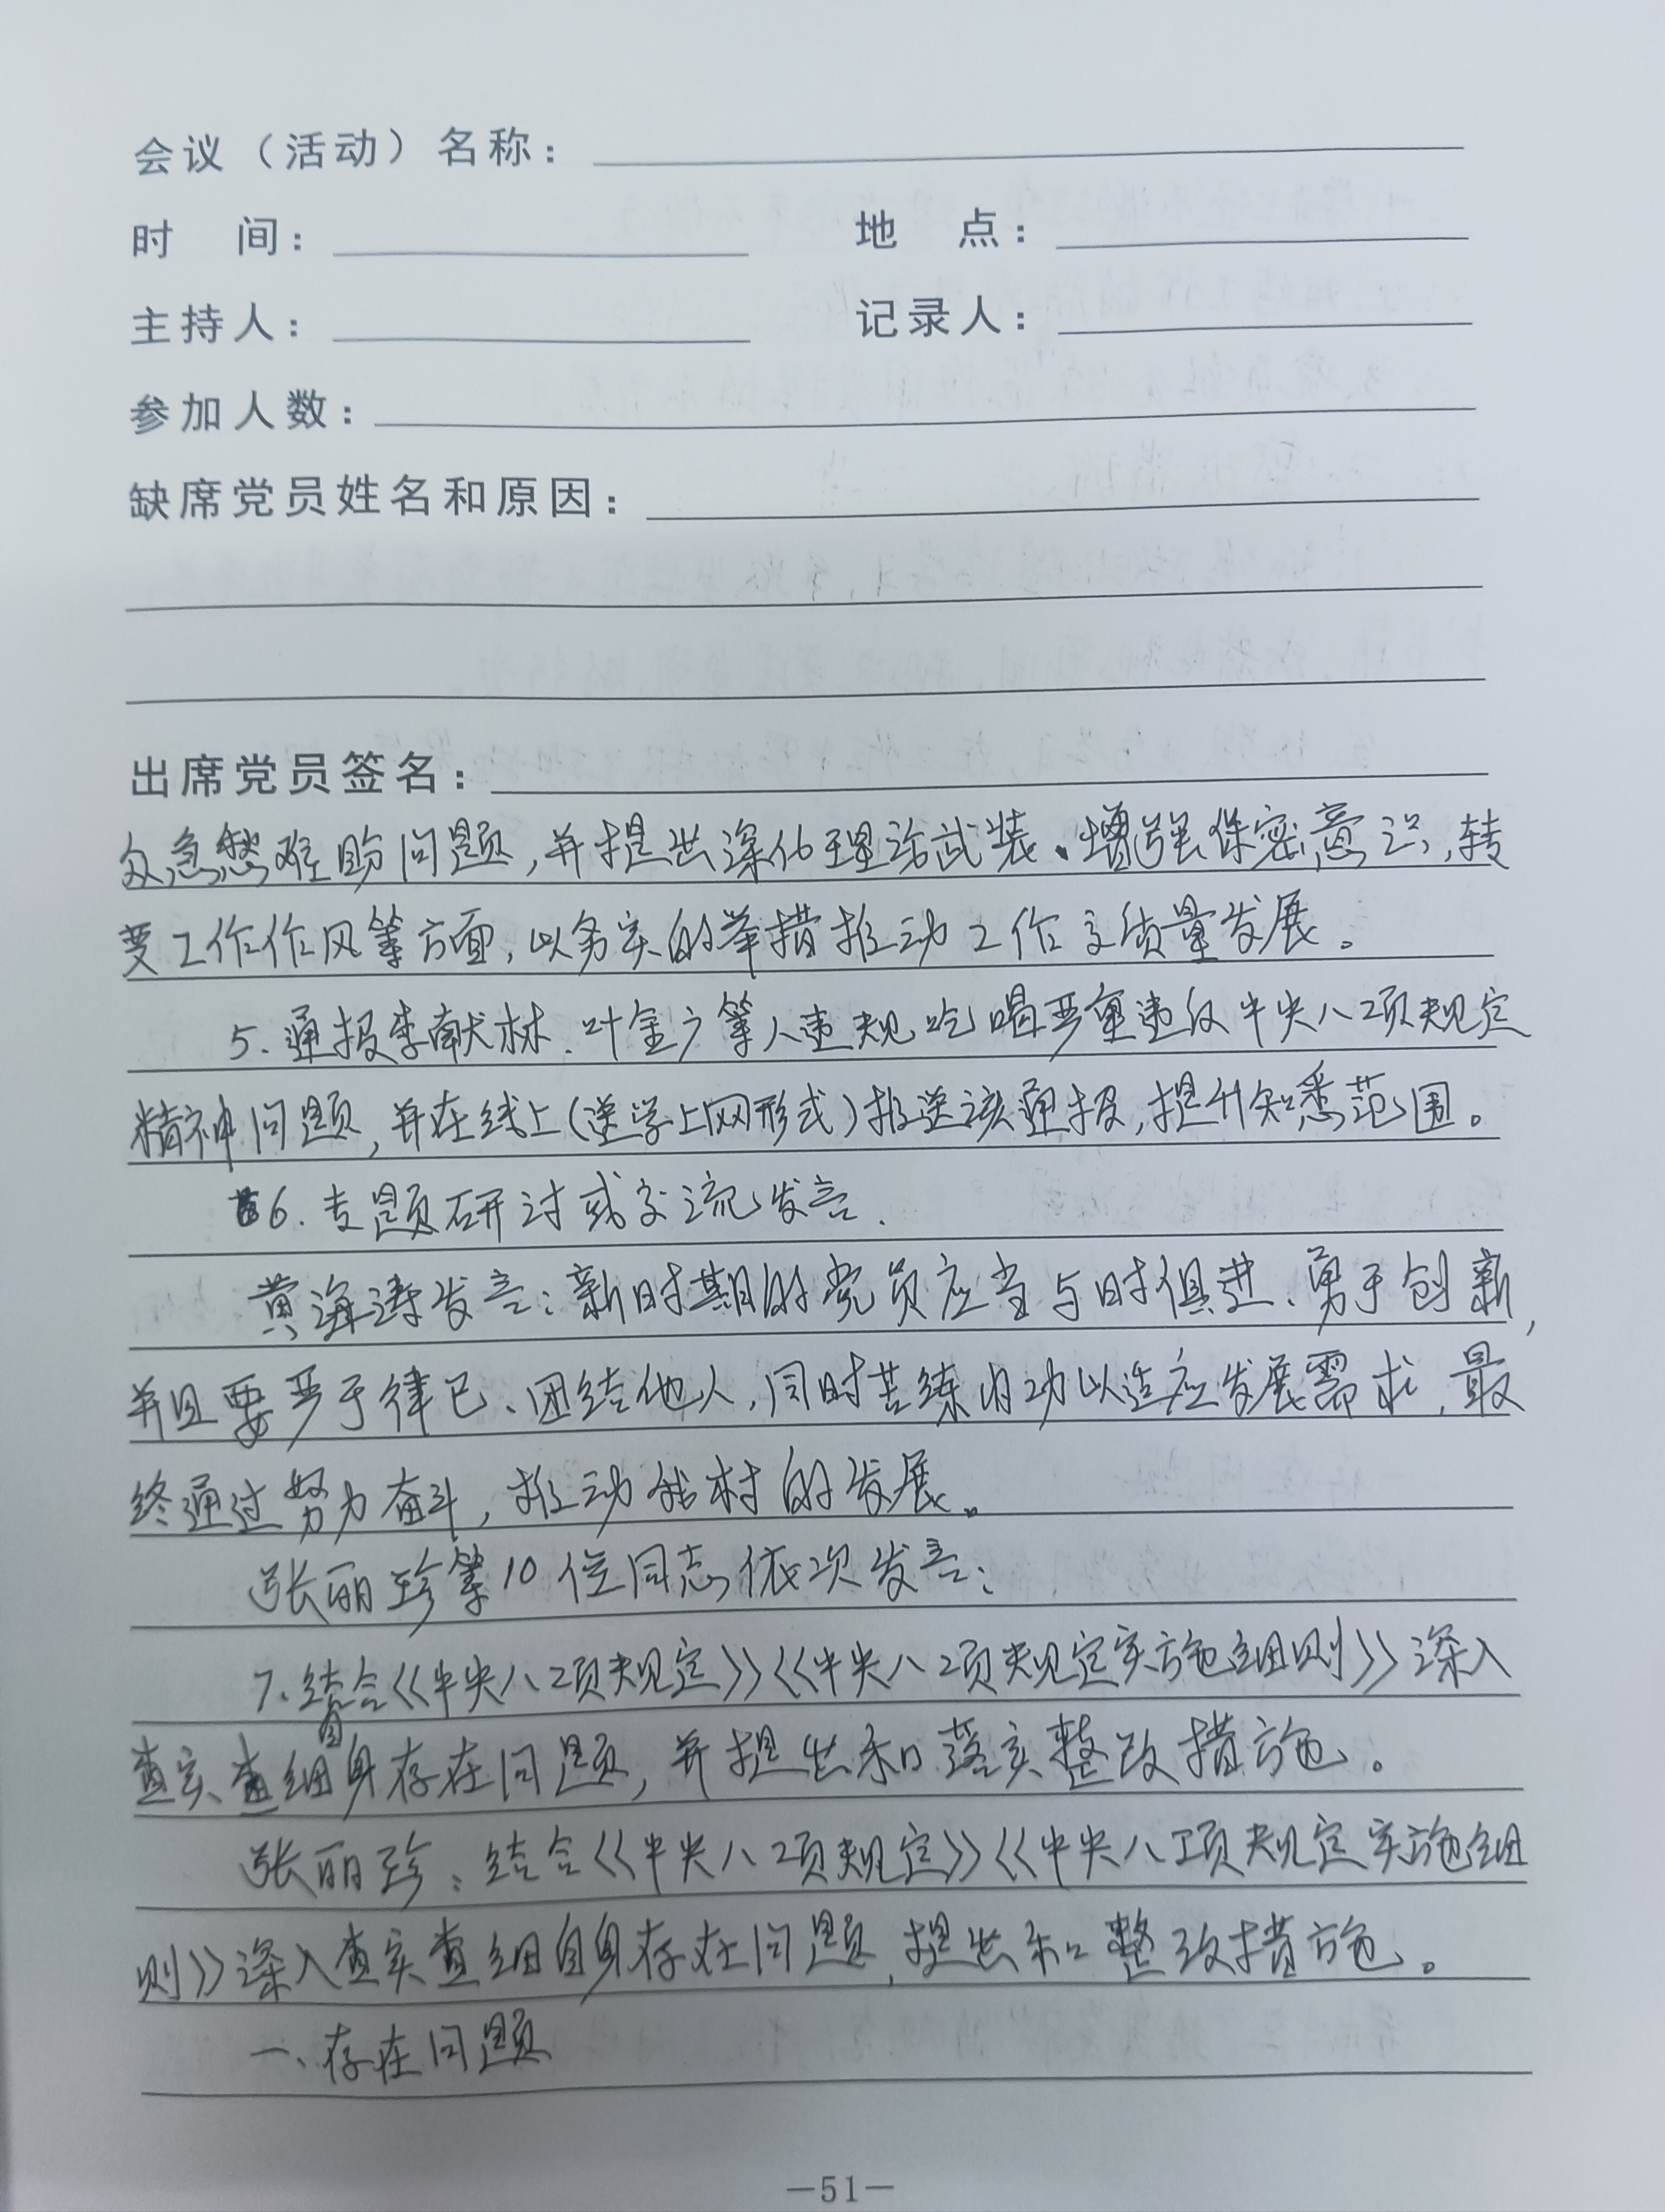 会议（活动）名称：
时 间： 地 点：
主持人： 记录人：
参加人数：
缺席党员姓名和原因：
出席党员签名：
众急愁难盼问题，并提出深化理论武装、增强保密意识，转
变工作作风等方面，以务实的举措推动工作高质量发展。
5. 通报李献林、叶金广等人违规吃喝严重违反中央八项规定
精神问题，并在线上（送学上网形式）推送该通报，提升知悉范围。
6. 专题研讨或交流发言.
黄海涛发言：新时期的党员应当与时俱进、勇于创新，
并且要严于律已、团结他人，同时苦练内功以适应发展需求，最
终通过努力奋斗，推动我村的发展。
张丽珍等10位同志依次发言：
7. 结合《中央八项规定》《中央八项规定实施细则》深入
查实查细自身存在问题，并提出和落实整改措施。
张丽珍：结合《中央八项规定》《中央八项规定实施细
则》深入查实查细自身存在问题，提出和整改措施。
一、存在问题
—51—